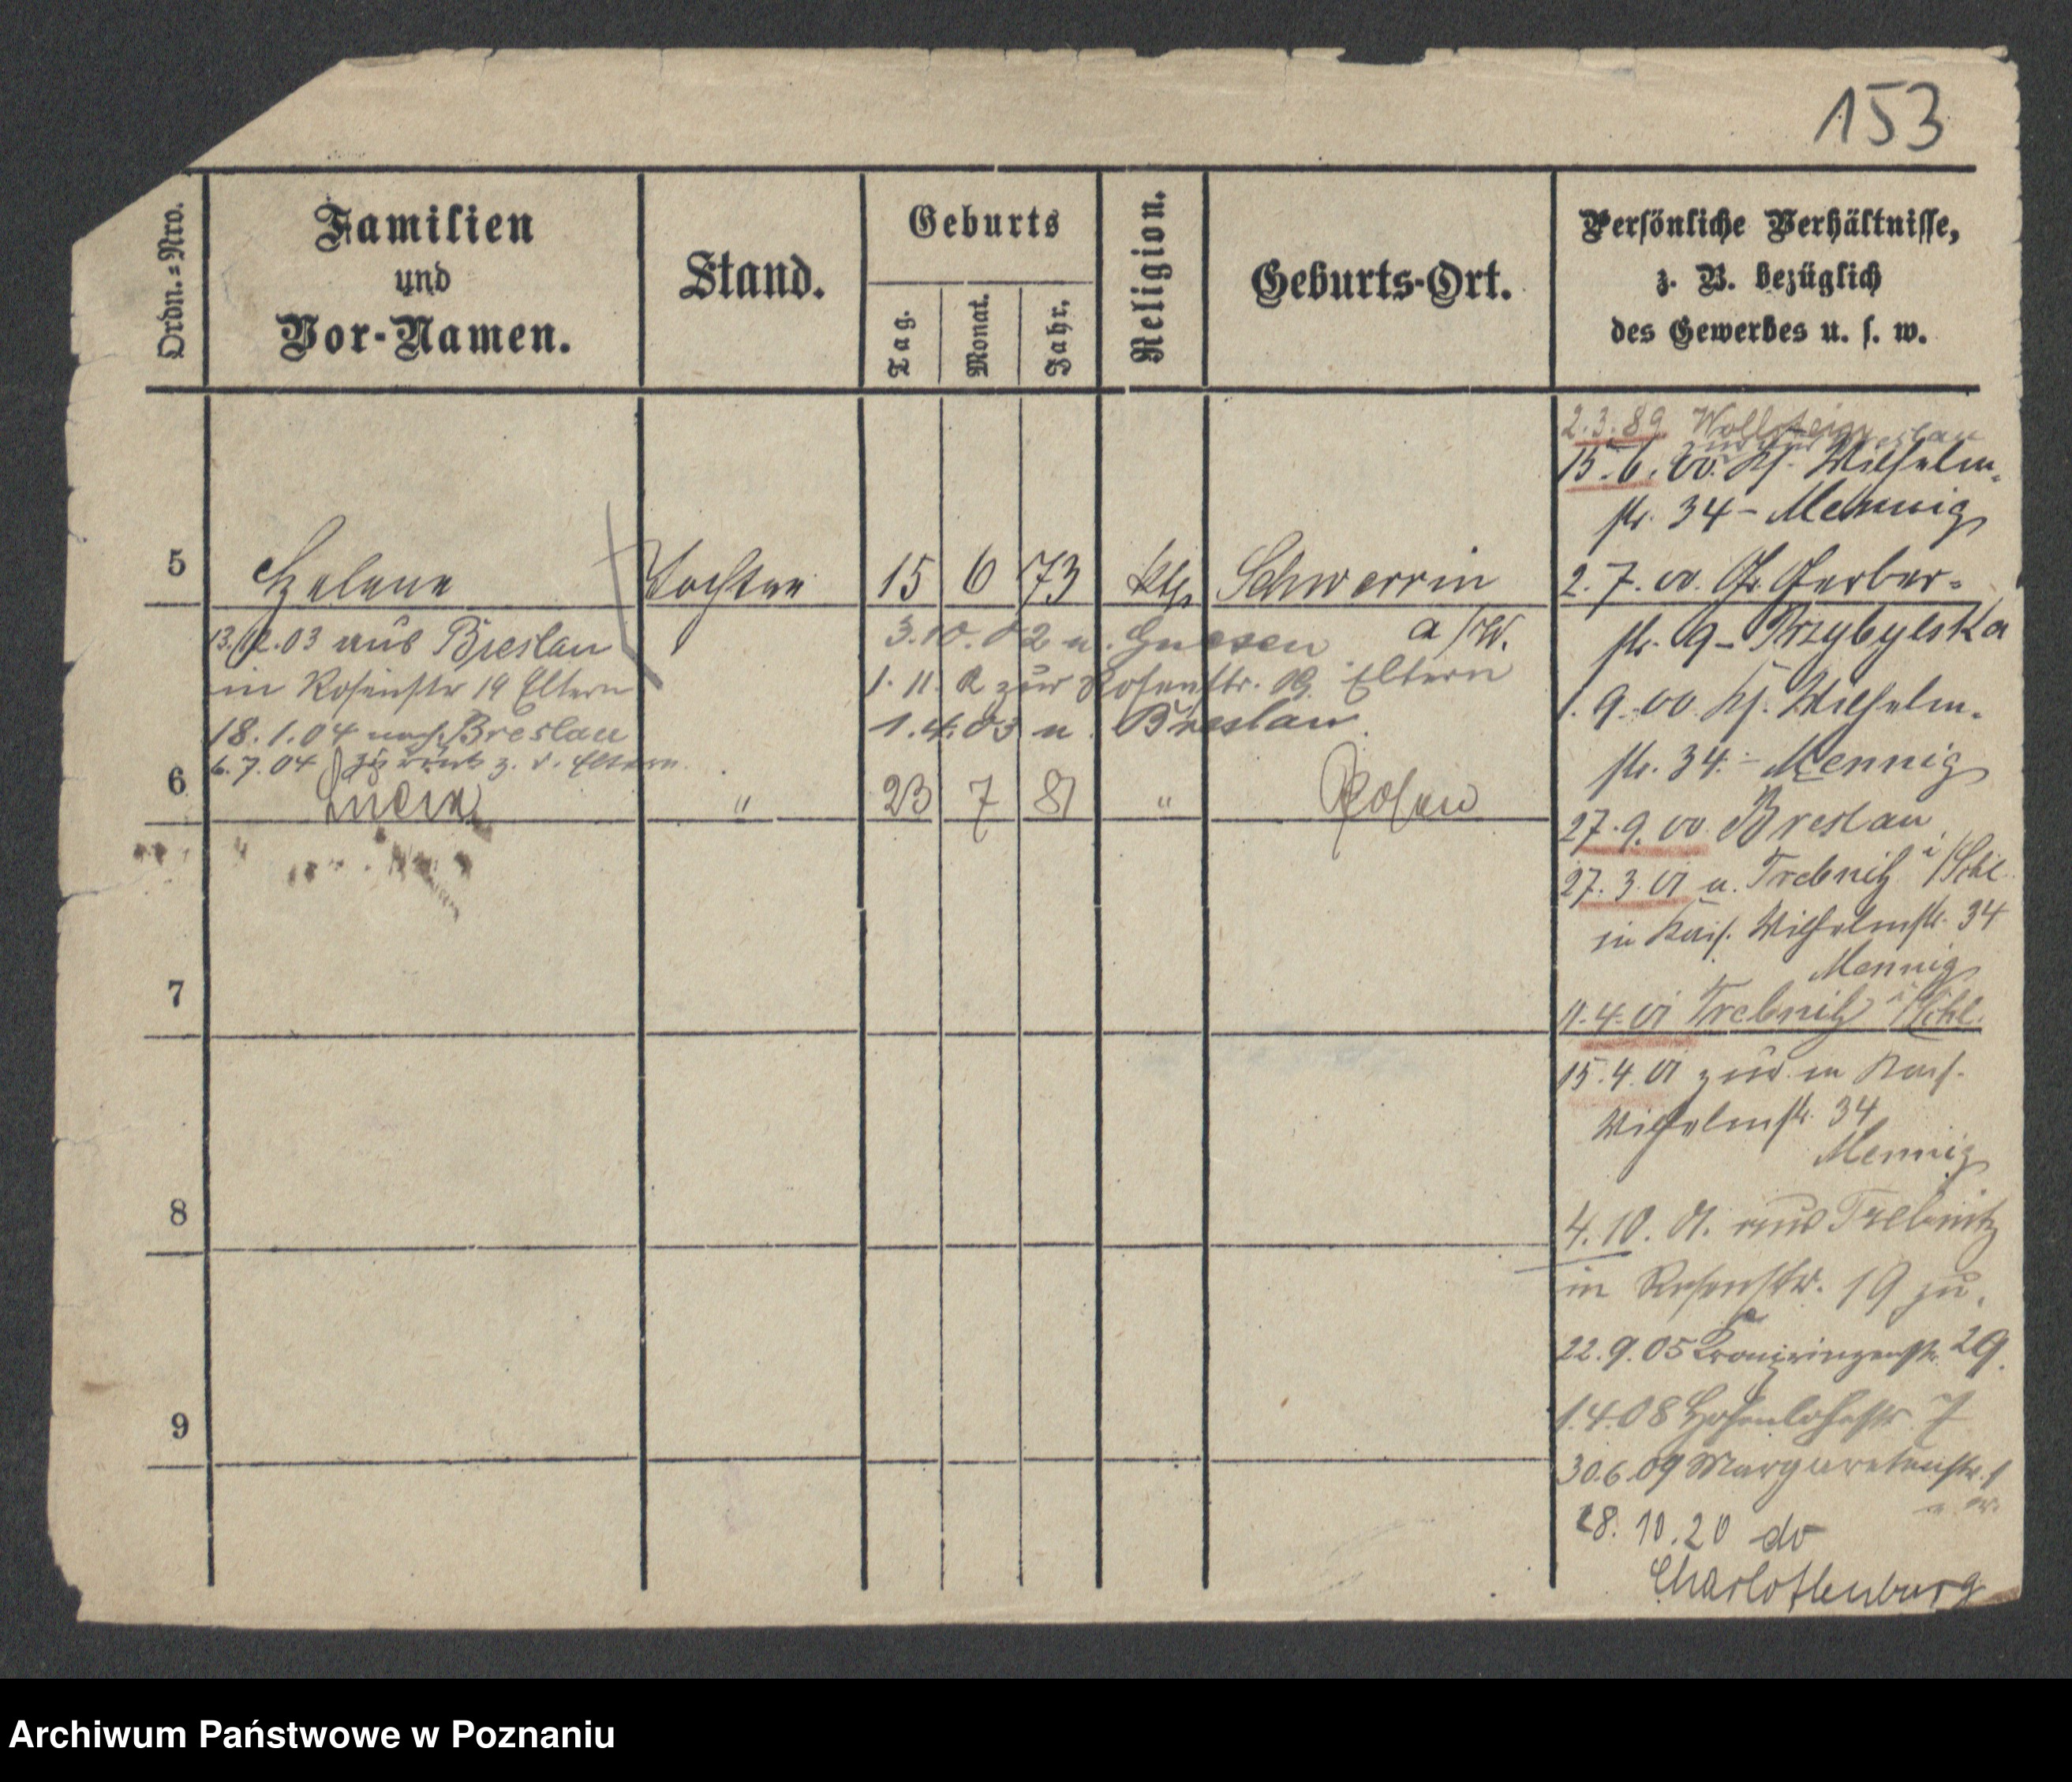 153
Ordn.=Nro.
Familien
und
Vor-Namen.
Stand.
Geburts
Tag.
Monat.
Jahr.
Religion.
Geburts-Ort.
Persönliche Verhältnisse,
z. B. bezüglich
des Gewerbes u. s. w.
5 Helene Tochter 15 6 73 kth Schwerin
a/W.
13.12.03 aus Breslau
in Rosenstr 19 Eltern
18.1.04 nach Breslau
6.7.04 zurück z. d. Eltern
3.10.02 n. Gnesen
1.11.02 zur Rosenstr. 19 Eltern
1.4.03 n. Breslau.
6 Lucia " 23 7 81 " Posen
7
8
9
2.3.89 Wollstein
15.6.00. Ks. Wilhelm-
str. 34 - Mennig
2.7.00. Gr. Gerber-
str. 9 - Przybylska
1.9.00 Ks. Wilhelm-
str. 34 - Mennig
27.9.00 Breslau
27.3.01 a. Trebnitz i/Schl.
in Kais. Wilhelmstr. 34
Mennig
11.4.01 Trebnitz i/Schl.
15.4.01 zur. in Kais.
Wilhelmstr. 34
Mennig
4.10.01. aus Trebnitz
in Rosenstr. 19 zu.
22.9.05 Kronprinzenstr. 29.
1.4.08 Hohenlohestr 7
30.6.09 Margaretenstr. 1
28.10.20 do
Charlottenburg
Archiwum Państwowe w Poznaniu